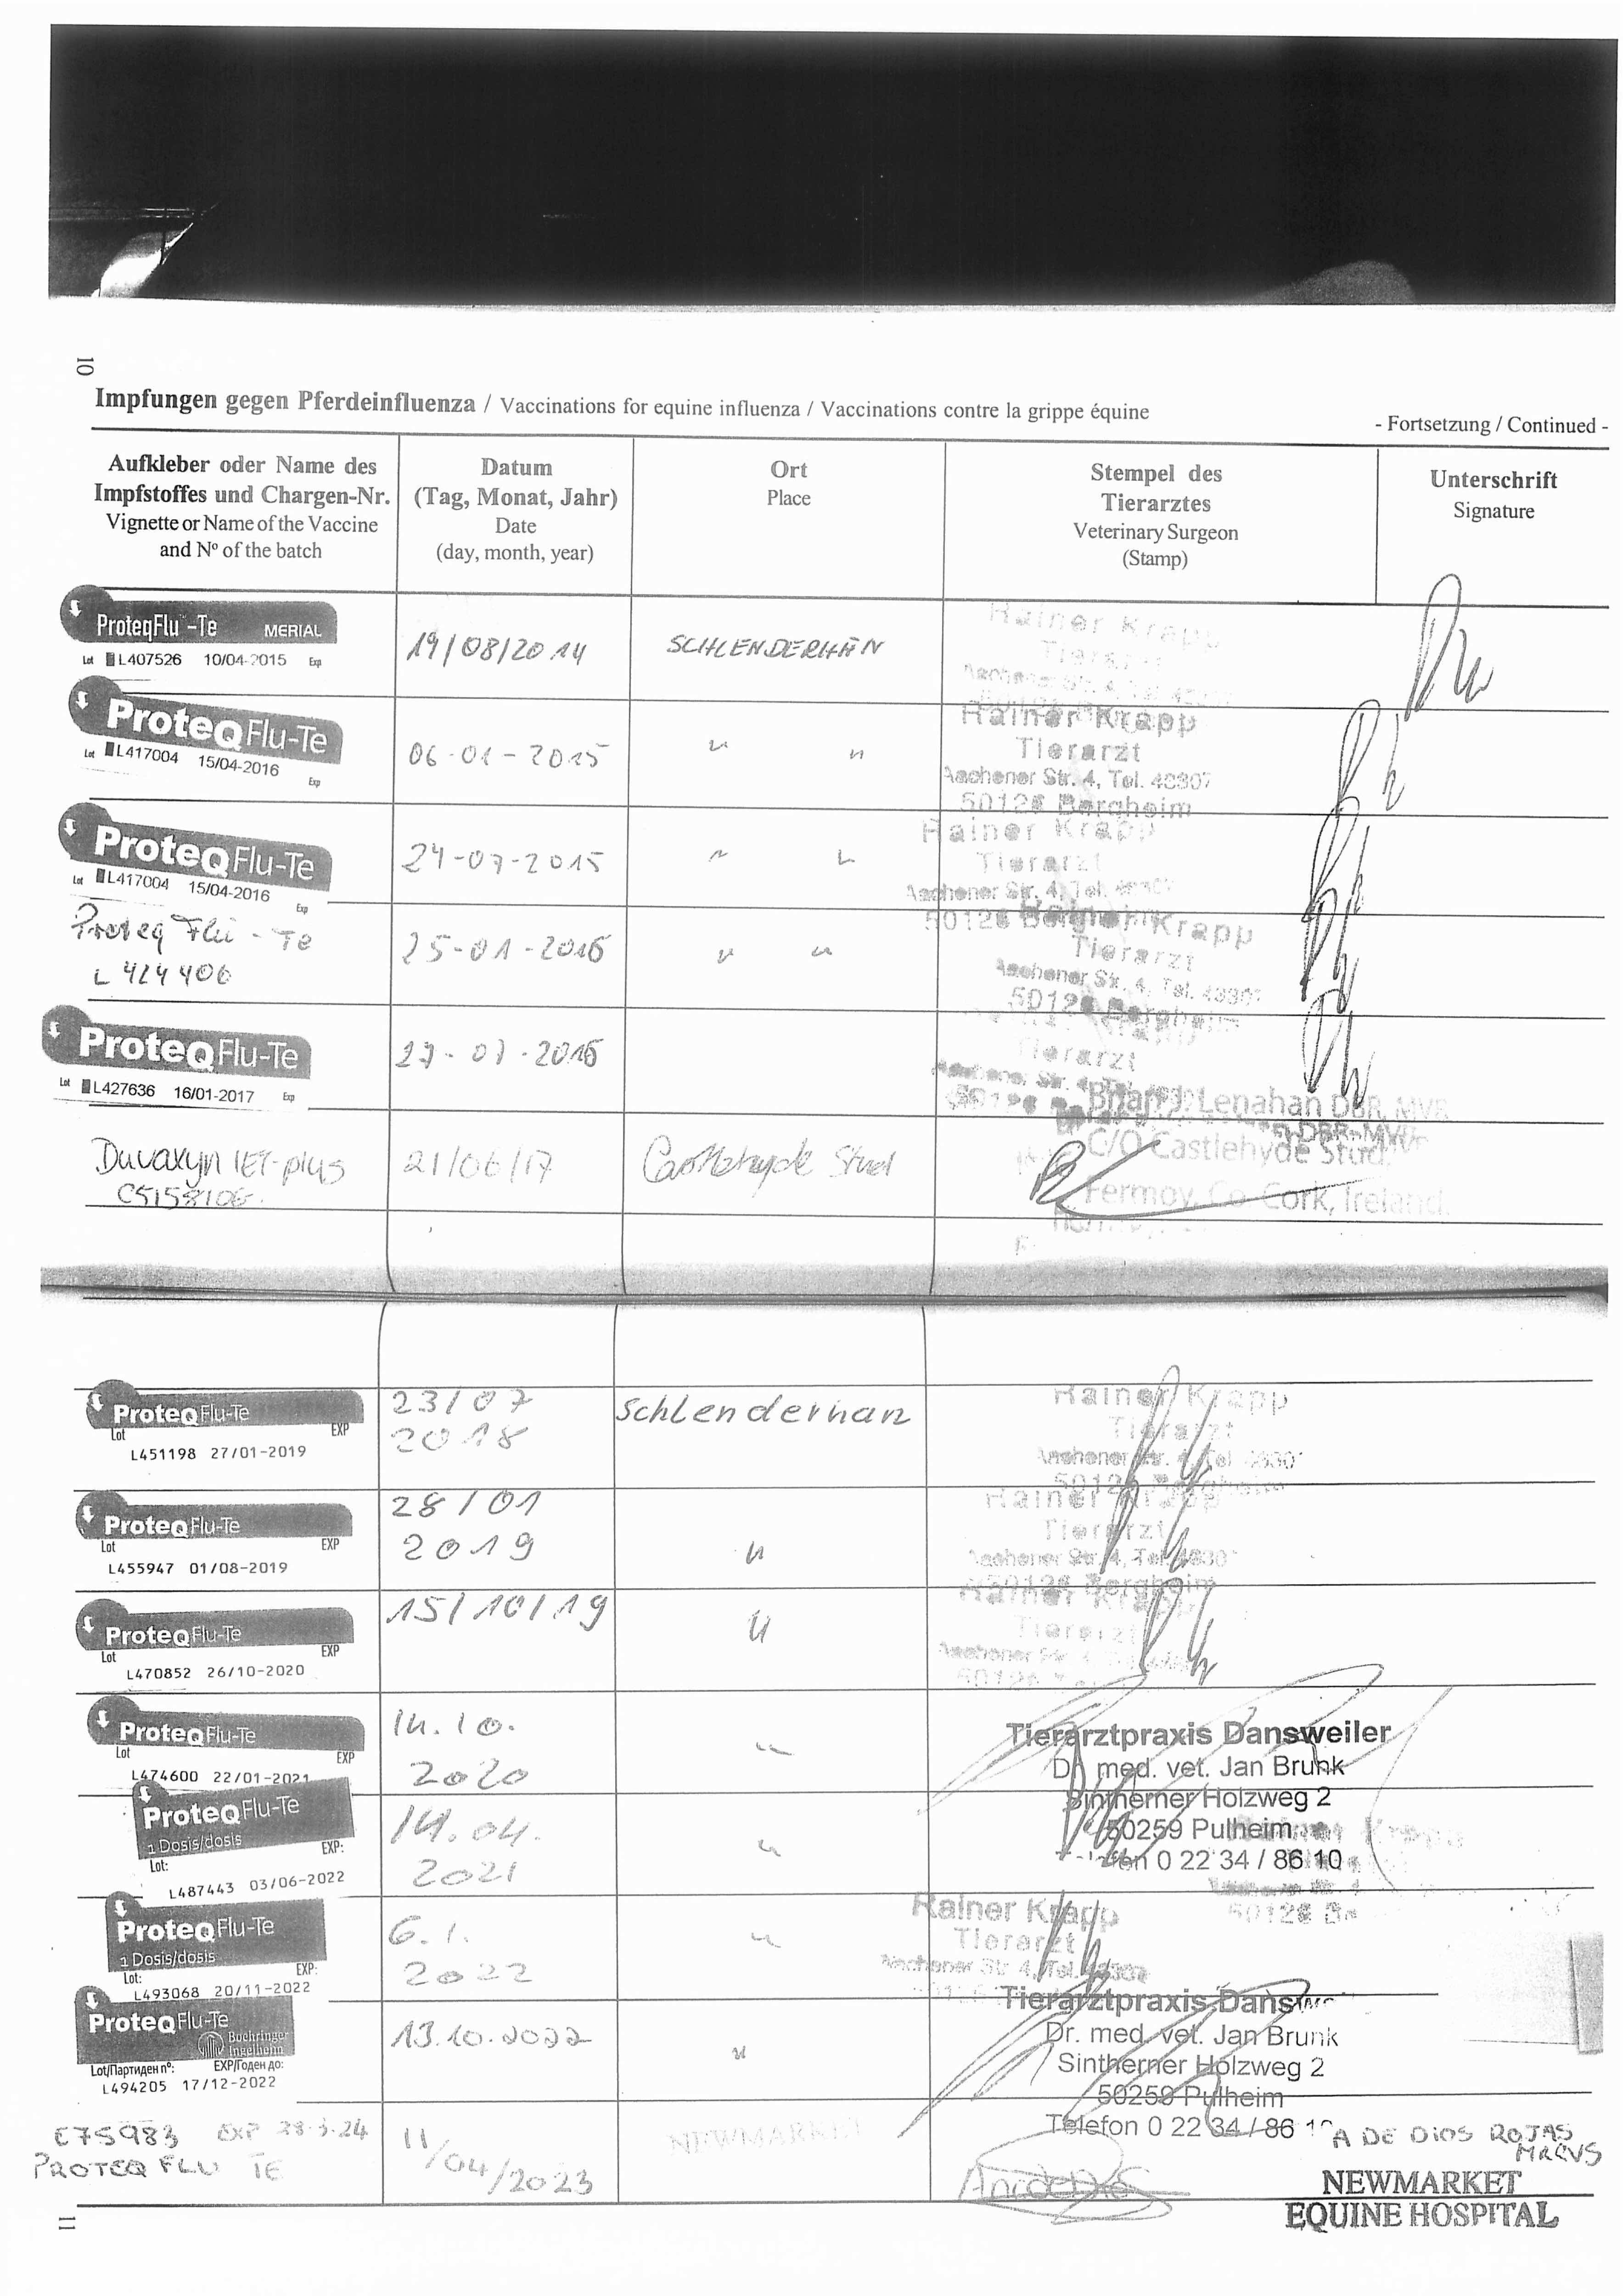 10
Impfungen gegen Pferdeinfluenza / Vaccinations for equine influenza / Vaccinations contre la grippe équine
- Fortsetzung / Continued -
Aufkleber oder Name des
Impfstoffes und Chargen-Nr.
Vignette or Name of the Vaccine
and Nº of the batch
Datum
(Tag, Monat, Jahr)
Date
(day, month, year)
Ort
Place
Stempel des
Tierarztes
Veterinary Surgeon
(Stamp)
Unterschrift
Signature
ProteqFlu™-Te MERIAL
Lot L407526 10/04-2015 Exp
19/08/2014
SCHLENDERHAN
Rainer Krapp
Tierarzt
Aachener Str. 4, Tel.
ProteqFlu-Te
Lot L417004 15/04-2016 Exp
06-01-2015
" "
Rainer Krapp
Tierarzt
Aachener Str. 4, Tel. 43307
50126 Bergheim
ProteqFlu-Te
Lot L417004 15/04-2016 Exp
24-07-2015
" "
Rainer Krapp
Tierarzt
Aachener Str. 4, Tel.
50126 Bergheim
Proteq Flu - Te
L 424406
25-01-2016
" "
Rainer Krapp
Tierarzt
Aachener Str. 4, Tel. 43307
50126 Bergheim
ProteqFlu-Te
Lot L427636 16/01-2017 Exp
27-07-2016
Tierarzt
Duvaxyn IET-plus
C515810G
21/06/17
Castlehyde Stud
Brian J. Lenahan DBR, MVB
C/O Castlehyde Stud,
Fermoy, Co Cork, Ireland.
ProteqFlu-Te
Lot EXP
L451198 27/01-2019
23/07
2018
Schlenderhan
Rainer Krapp
Tierarzt
Aachener Str. 4, Tel
50126 Bergheim
ProteqFlu-Te
Lot EXP
L455947 01/08-2019
28/01
2019
"
Rainer Krapp
Tierarzt
Aachener Str. 4, Tel.
50126 Bergheim
ProteqFlu-Te
Lot EXP
L470852 26/10-2020
15/10/19
"
Rainer Krapp
Tierarzt
Aachener Str.
50126
ProteqFlu-Te
Lot EXP
L474600 22/01-2021
14.10.
2020
"
Tierarztpraxis Dansweiler
Dr. med. vet. Jan Brunk
Sintherner Holzweg 2
50259 Pulheim
Telefon 0 22 34 / 86 10
ProteqFlu-Te
1 Dosis/dosis
Lot: EXP:
L487443 03/06-2022
14.04.
2021
"
Rainer Krapp
50126
ProteqFlu-Te
1 Dosis/dosis
Lot: EXP:
L493068 20/11-2022
6.1.
2022
"
Rainer Krapp
Tierarzt
Aachener Str. 4, Tel. 43307
ProteqFlu-Te
Boehringer
Ingelheim
Lot/Партиден nº: EXP/Годен до:
L494205 17/12-2022
13.10.2022
"
Tierarztpraxis Dansw
Dr. med. vet. Jan Brunk
Sintherner Holzweg 2
50259 Pulheim
Telefon 0 22 34 / 86 10
C75983 EXP 28-3-24
PROTEQ FLU TE
11/04/2023
NEWMARKET
A DE DIOS ROJAS
MRCVS
NEWMARKET
EQUINE HOSPITAL
11